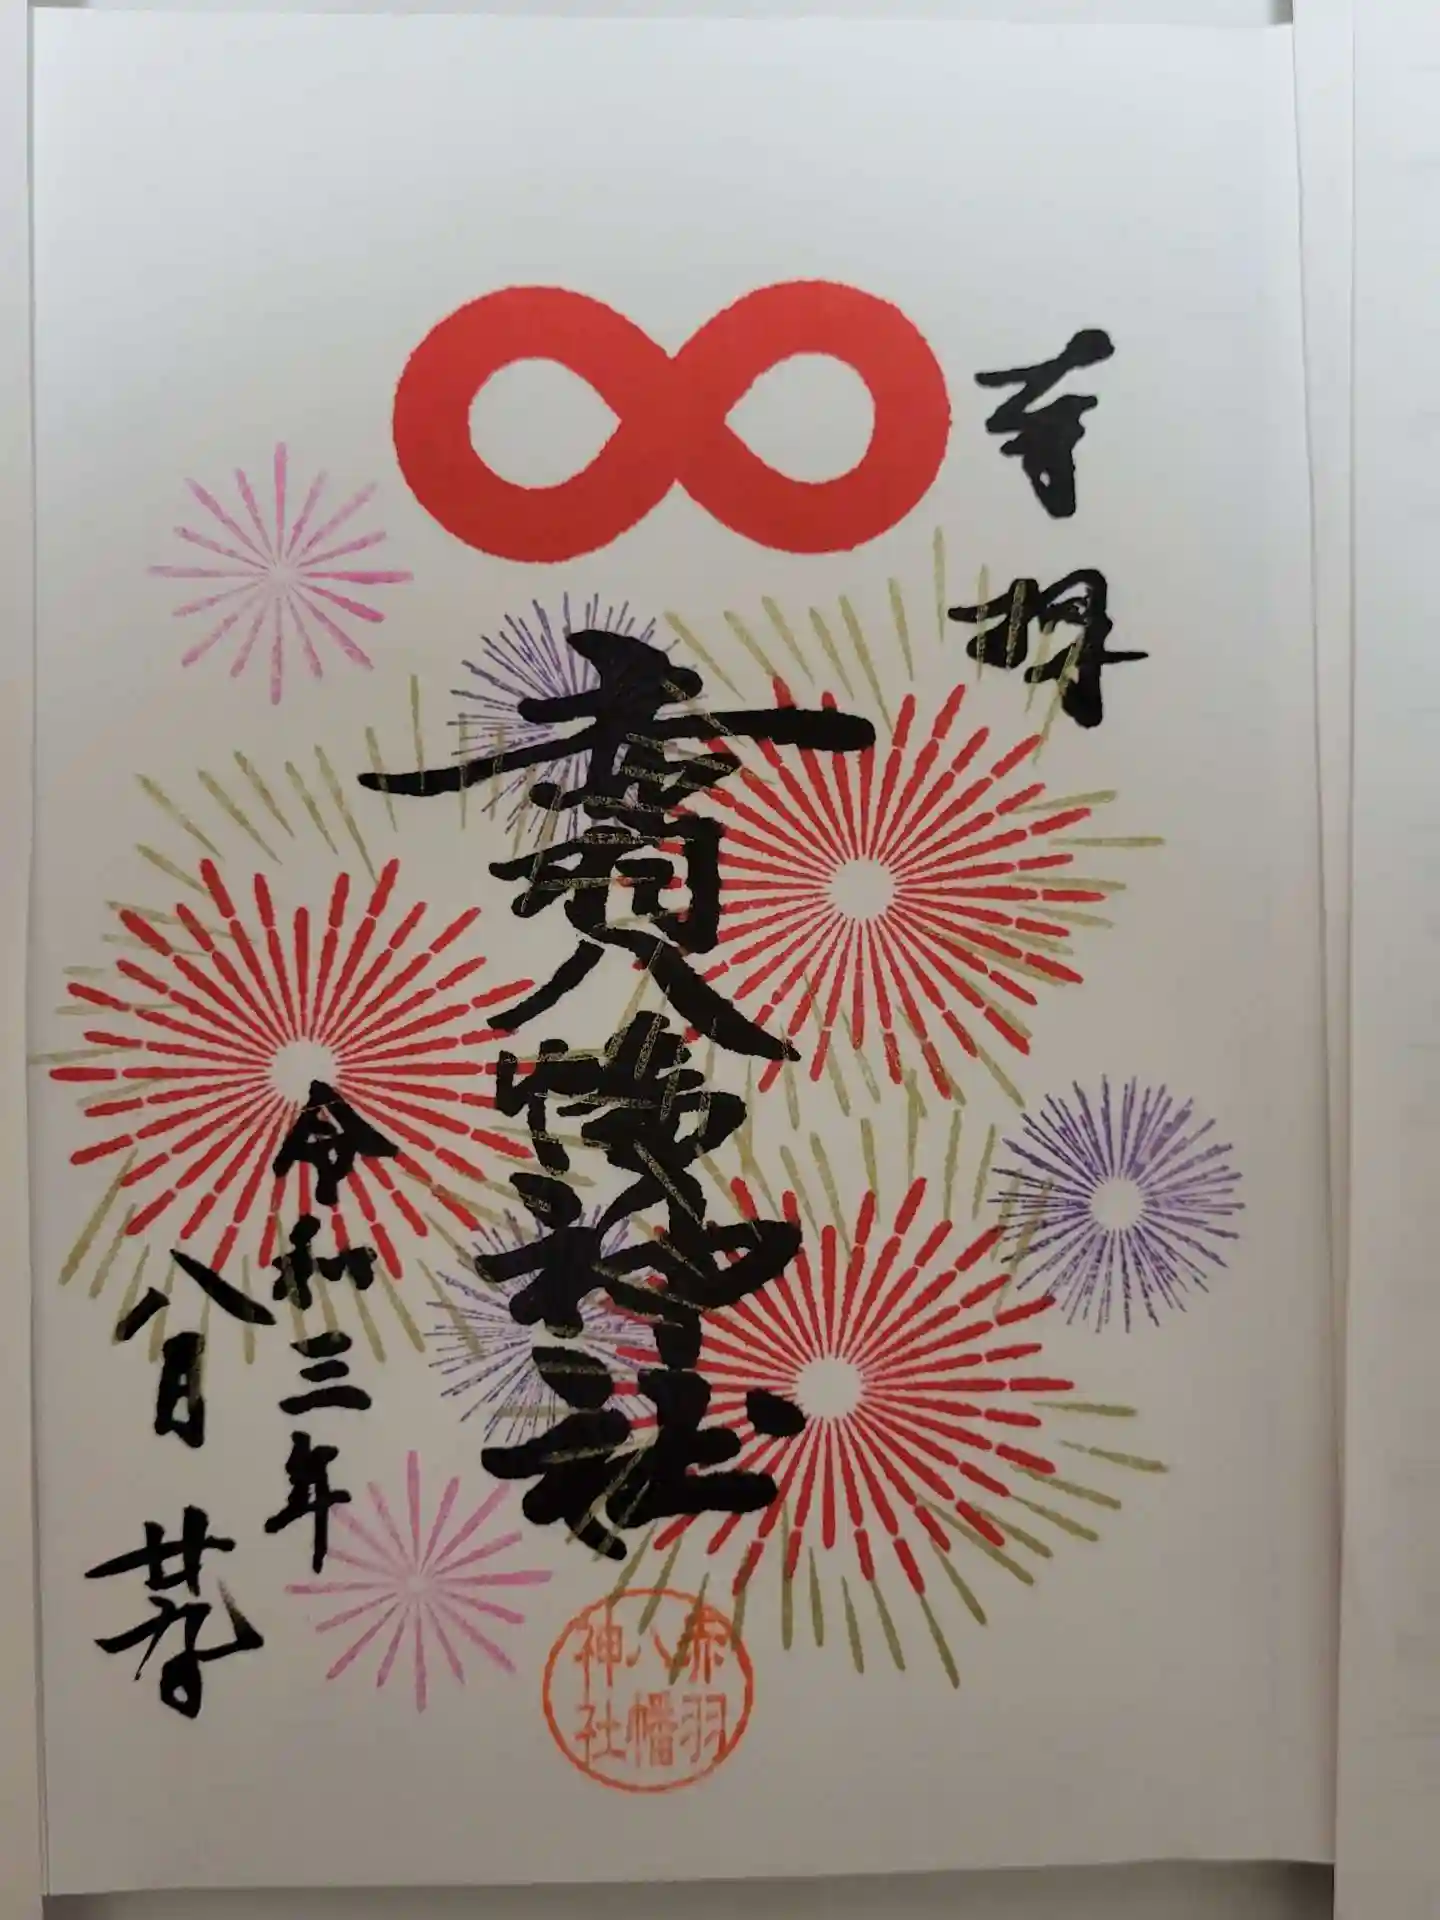 奉拝
赤羽八幡神社
令和三年
八月廿九日
赤羽
八幡
神社